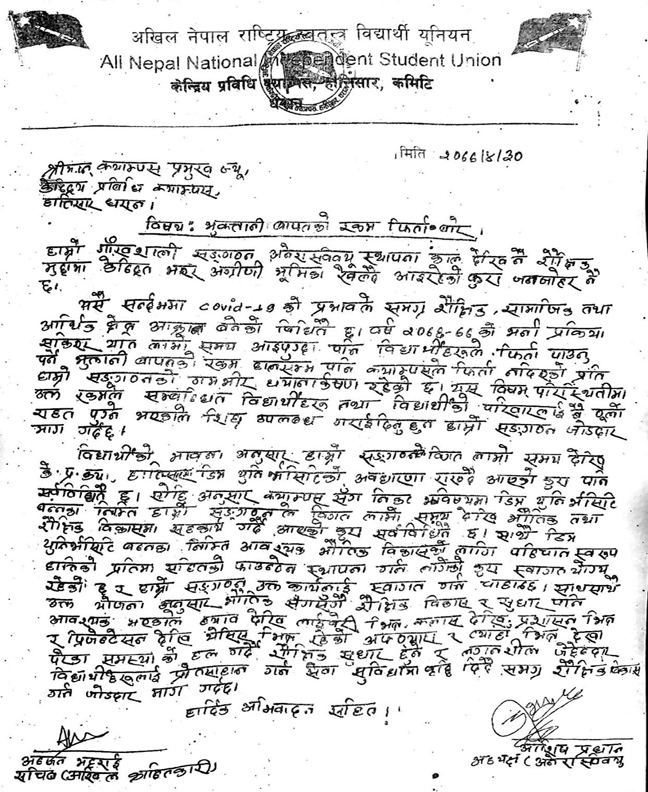 अखिल नेपाल राष्ट्रिय स्वतन्त्र विद्यार्थी यूनियन
All Nepal National Independent Student Union
केन्द्रिय प्रविधि क्याम्पस, हात्तिसार, कमिटि
धरान
मिति २०७७/४/३०
क्याम्पस प्रमुख ज्यू,
केन्द्रिय प्रविधि क्याम्पस,
हात्तिसार धरान।
विषयः भुक्तानी बापतको रकम फिर्ता बारे।
हाम्रो गौरवशाली सङ्गठन स्थापना काल देखि नै शैक्षिक
मुद्दामा केन्द्रित भइर अग्रणी भूमिका खेल्दै आइरहेको कुरा जनजाहेर नै
छ।
यसै सन्दर्भमा covid-19 को प्रभावले समग्र शैक्षिक, सामाजिक तथा
आर्थिक क्षेत्र बनेको विधितै छ। वर्ष को भर्ना प्रक्रिया
लामो समय आइपुग्दा पनि विद्यार्थीहरूले फिर्ता पाउनु
पर्ने भुक्तानी बापतको रकम हालसम्म पनि क्याम्पसले फिर्ता नदिएको प्रति
हाम्रो सङ्गठनको गम्भीर ध्यानाकर्षण रहेको छ। यस विषम परिस्थितीमा
उक्त रकमले सम्बन्धित विद्यार्थीहरू तथा विद्यार्थीको परिवारलाई नै ठूलो
राहत पुग्ने भएकाले शिघ्र उपलब्ध गराईदिनुहुन हाम्रो सङ्गठन जोडदार
माग गर्दछ।
विद्यार्थीको भावना अनुसार हाम्रो सङ्गठनले विगत लामो समय देखि
के.प्र.क्या. हात्तिसार डिम्ड युनिभर्सिटीको अवधारणा राख्दै आएको कुरा पनि
सर्वविधितै छ। सोहि अनुसार क्याम्पस संग निकट भविष्यमा डिम्ड युनिभर्सिटि
बन्नका निम्ति हाम्रो सङ्गठनले विगत लामो समय देखि भौतिक तथा
शैक्षिक विकासमा सहकार्य गर्दै आएको कुरा सर्वविधितै छ। साथै डिम्ड
युनिभर्सिटि बन्नका निम्ति आवश्यक भौतिक विकासको लागि पहिचान स्वरूप
हात्तिको प्रतिमा सहितको फाउन्टेन स्थापना गर्न लागेको कुरा स्वागत योग्य
रहेको छ र हाम्रो सङ्गठन उक्त कार्यलाई स्वागत गर्न चाहन्छ। साथसाथै
उक्त योजना अनुसार भौतिक सँगसँगै शैक्षिक विकास र सुधार पनि
आवश्यक भएकाले ल्याब देखि लाईब्रेरी भित्र, क्लास देखि प्रशासन भित्र
र प्रिजेन्टेसन देखि थेसिस भित्र रहेको र त्यहाँ भित्र देखा
परेका समस्या को हल गर्दै शैक्षिक सुधार हुने र लगनशील जेहेन्दार
विद्यार्थीहरूलाई प्रोत्साहन गर्न सेवा सुविधामा वृद्धि दिँदै समग्र शैक्षिक विकास
गर्न जोडदार माग गर्दछ।
हार्दिक अभिवादन सहित।
भट्टराई
सचिव (अखिल क्रान्तिकारी)
आशिष प्रधान
अध्यक्ष (अनेरास्ववियु)